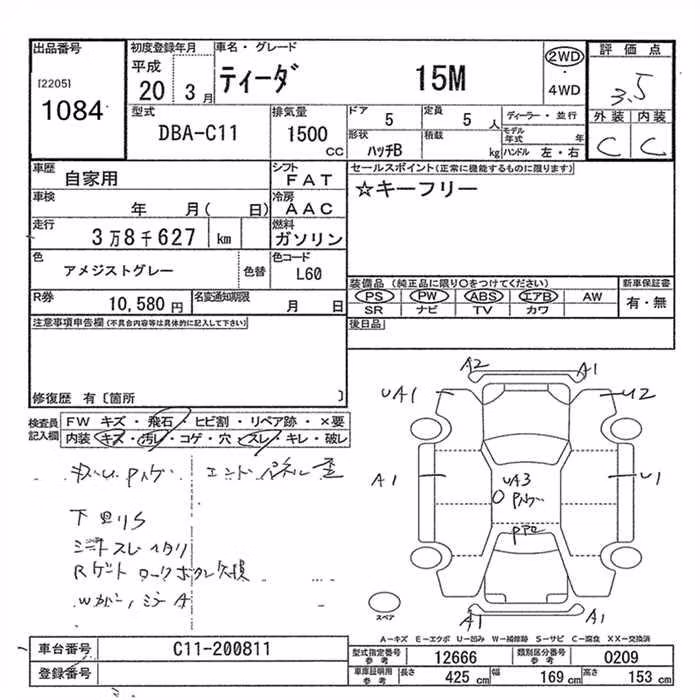 出品番号
[2205]
1084
初度登録年月
平成
20 3月
車名・グレード
ティーダ 15M
2WD
・
4WD
評価点
3.5
外装 内装
C C
型式
DBA-C11
排気量
1500 CC
ドア
5
定員
5 人
形状
ハッチB
積載
kg
ディーラー・並行
モデル年式 年
ハンドル 左・右
車歴
自家用
シフト
FAT
車検
年 月( 日)
冷房
AAC
走行
3万8千627 km
燃料
ガソリン
色
アメジストグレー
色替
色コード
L60
R券
10,580円
名変通知期限
月 日
セールスポイント(正常に機能するものに限ります)
☆キーフリー
装備品(純正品に限り○をつけてください)
PS PW ABS エアB AW
SR ナビ TV カワ
新車保証書
有・無
後日品
注意事項申告欄(不具合内容等は具体的に記入して下さい)
修復歴 有〔箇所 〕
検査員記入欄
FW キズ・飛石・ヒビ割・リペア跡・×要
内装 キズ・汚レ・コゲ・穴・スレ・キレ・破レ
エンドパネル歪
下回りS
シートスレ ヘタリ
A2 A1
UA1 U2
A1 U1
UA3
A1 A1
スペア
A-キズ E-エクボ U-凹み W-補修跡 S-サビ C-腐食 XX-交換済
車台番号 C11-200811
登録番号
型式指定番号参考 12666
類別区分番号参考 0209
車庫証明用参考 長さ 425 cm 幅 169 cm 高さ 153 cm